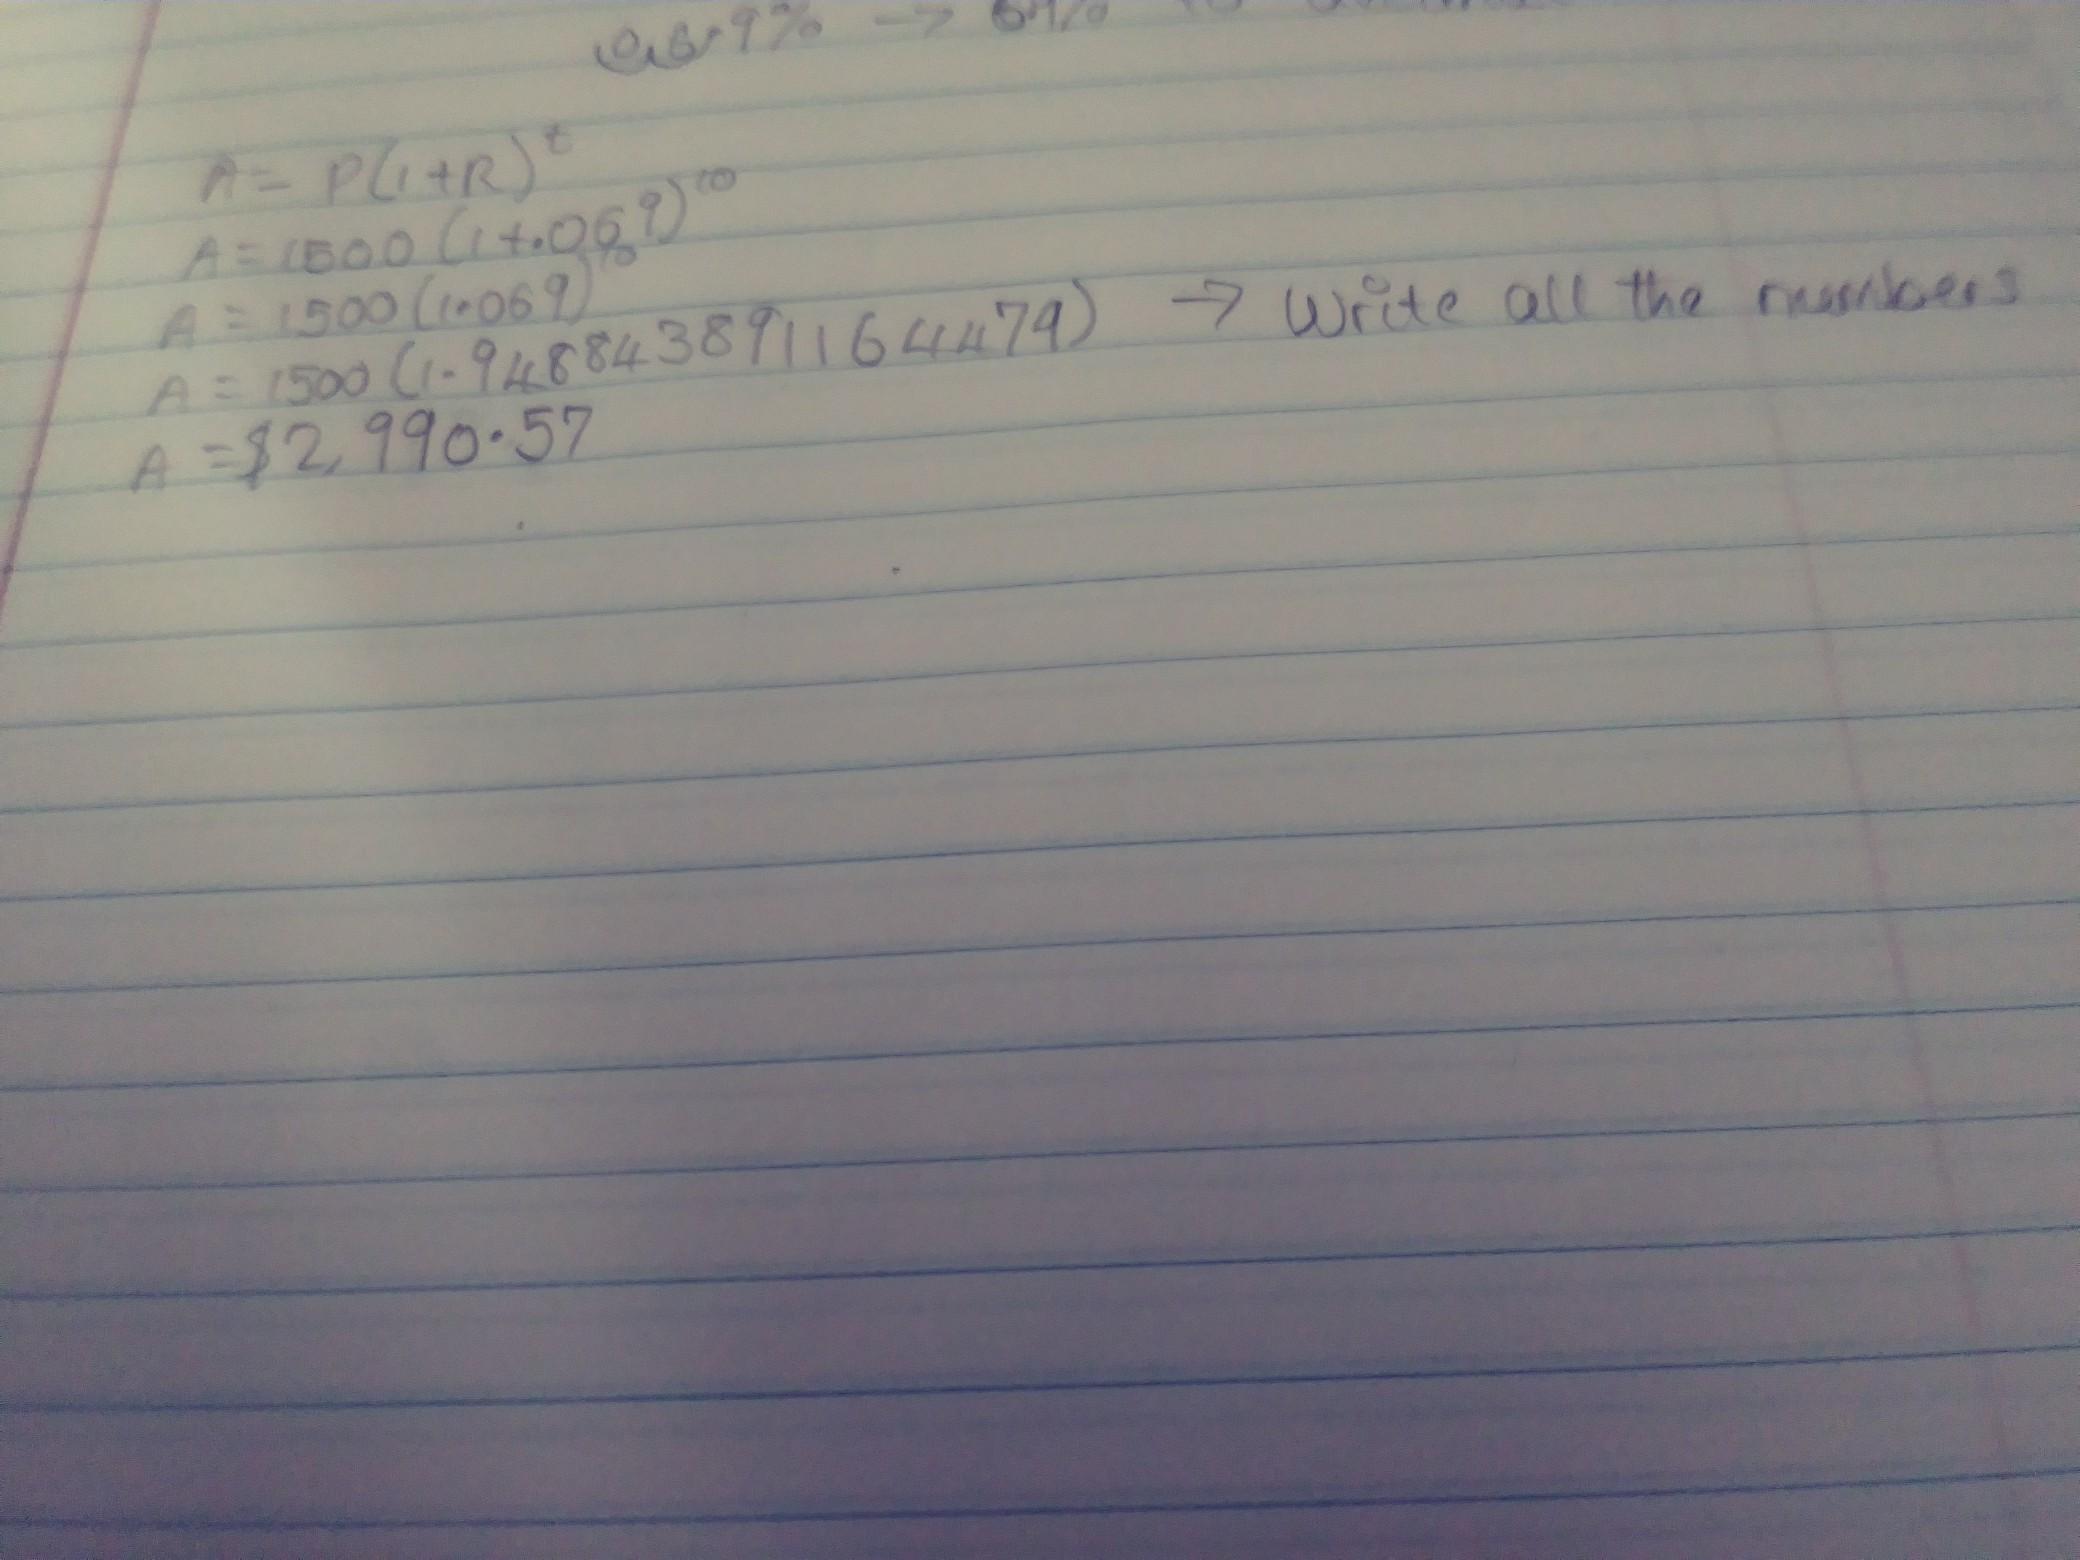 .06.9% →
A = P(1+R)^t
A = 1500 (1+.069)^10
A = 1500 (1.069)^10
A = 1500 (1.948843891164479) → Write all the numbers
A = $2,990.57